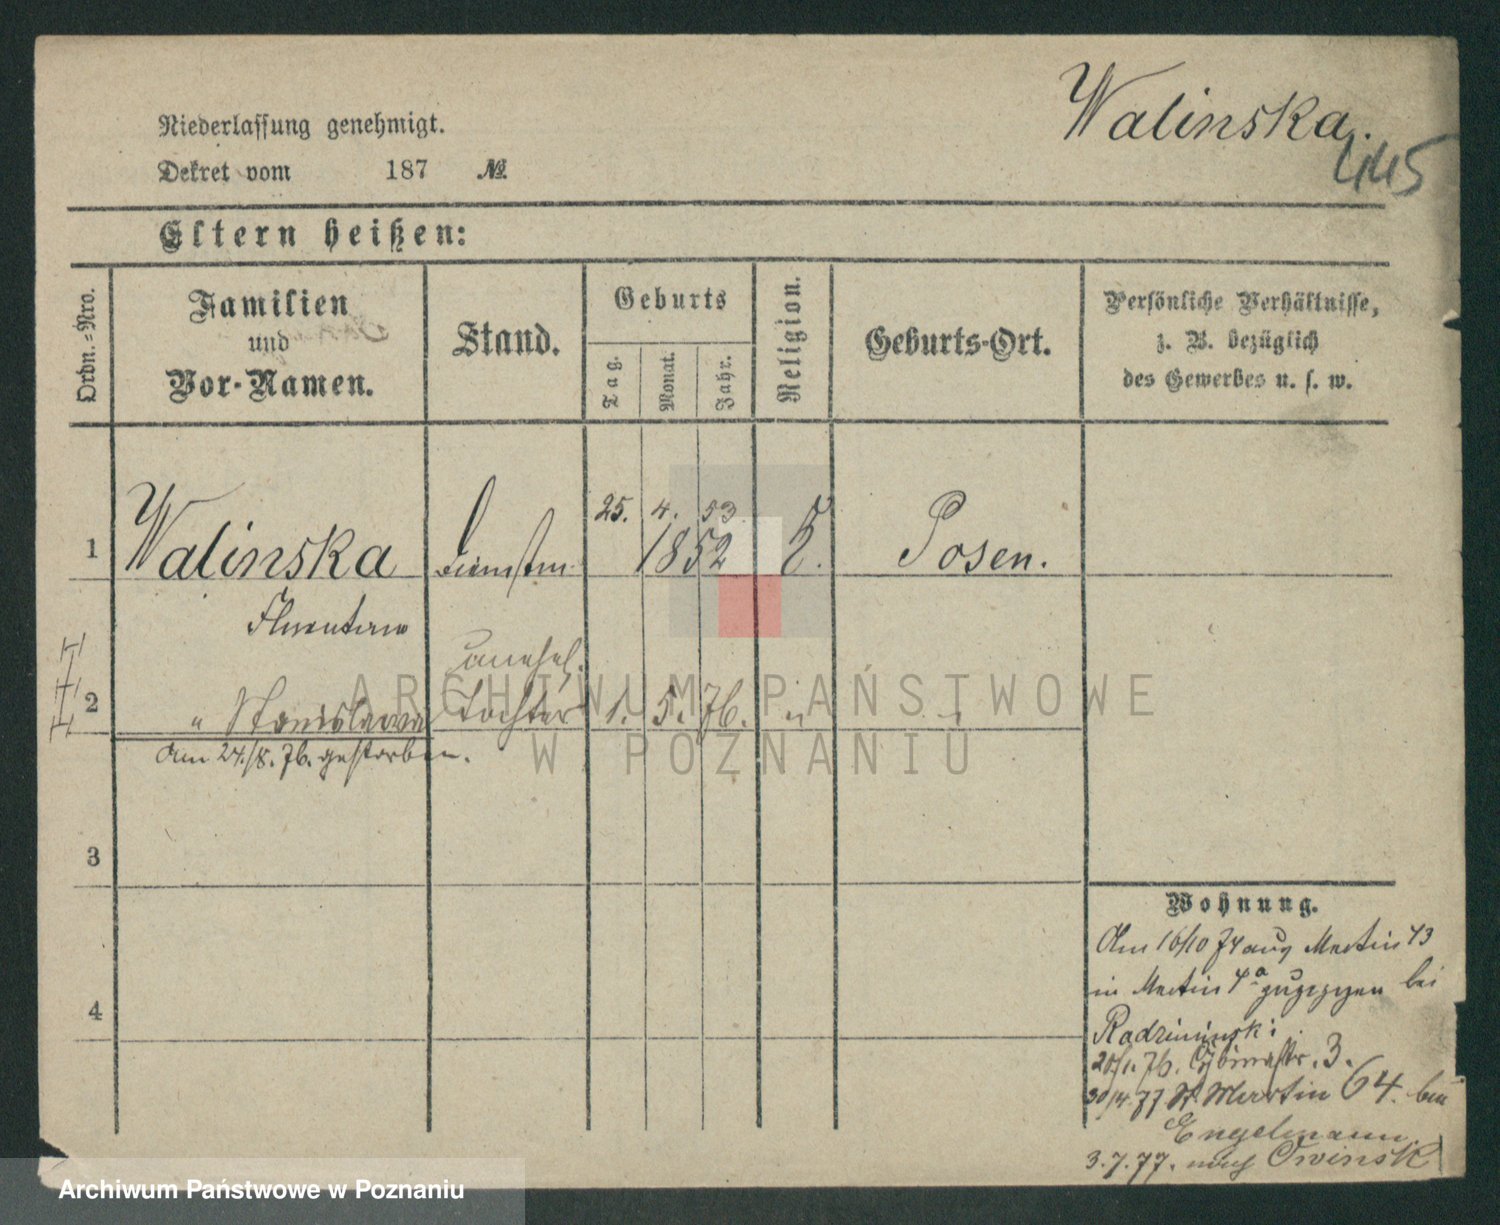 Walinska.
445
Niederlassung genehmigt.
Dekret vom 187 №
Eltern heißen:
Ordn.-Nro.
Familien
und
Vor-Namen.
Stand.
Geburts
Tag.
Monat.
Jahr.
Religion.
Geburts-Ort.
Persönliche Verhältnisse,
z. B. bezüglich
des Gewerbes u. s. w.
25. 4. 53
1 Walinska 1852 Posen.
unehel.
2 " Stanislawa Tochter 1. 5. 76. " "
Am 24./8. 76. gestorben.
3
4
Wohnung.
Am 16/10 74 aus Martin 43
in Martin 4a gezogen bei
Radziminski
20/1. 76. 3.
30/4. 77 St. Martin 64. bei
Engelmann.
3. 7. 77. nach Owinsk
ARCHIWUM PAŃSTWOWE
W POZNANIU
Archiwum Państwowe w Poznaniu